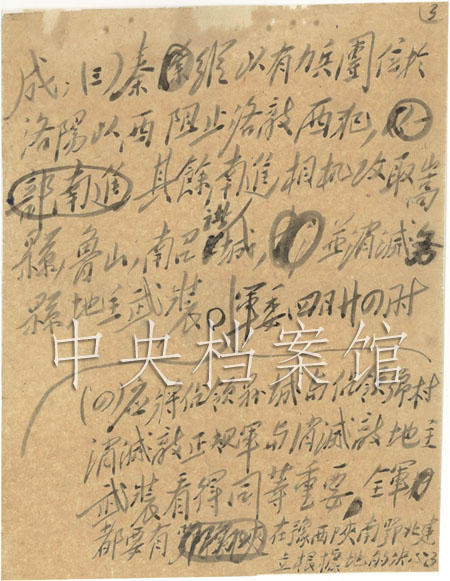 3
成，(三)秦縱以有力兵團位於
洛陽以西阻止洛敵西犯，
部南進，其餘南進相机攻取嵩
縣魯山，南召諸城，並消滅各
縣地主武裝。軍委，四月廿四
中央档案馆
(四)應將佔領縣城与佔領鄉村
消滅敵正規軍与消滅敵地主
武裝看得同等重要。全軍
都要有在豫西陝南鄂北建
立根據地的決心